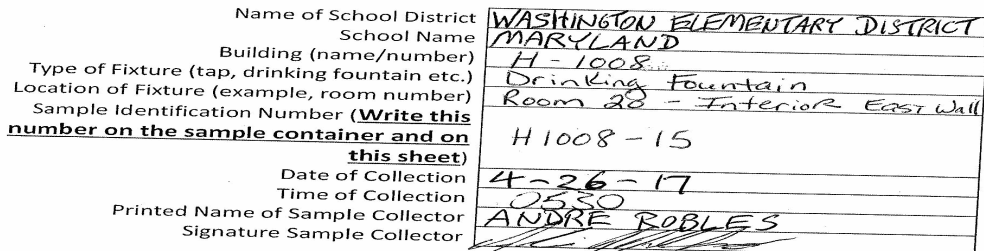 Name of School District WASHINGTON ELEMENTARY DISTRICT
School Name MARYLAND
Building (name/number) H-1008
Type of Fixture (tap, drinking fountain etc.) Drinking Fountain
Location of Fixture (example, room number) Room 20 - Interior East Wall
Sample Identification Number (Write this
number on the sample container and on
this sheet) H1008-15
Date of Collection 4-26-17
Time of Collection 0530
Printed Name of Sample Collector ANDRE ROBLES
Signature Sample Collector